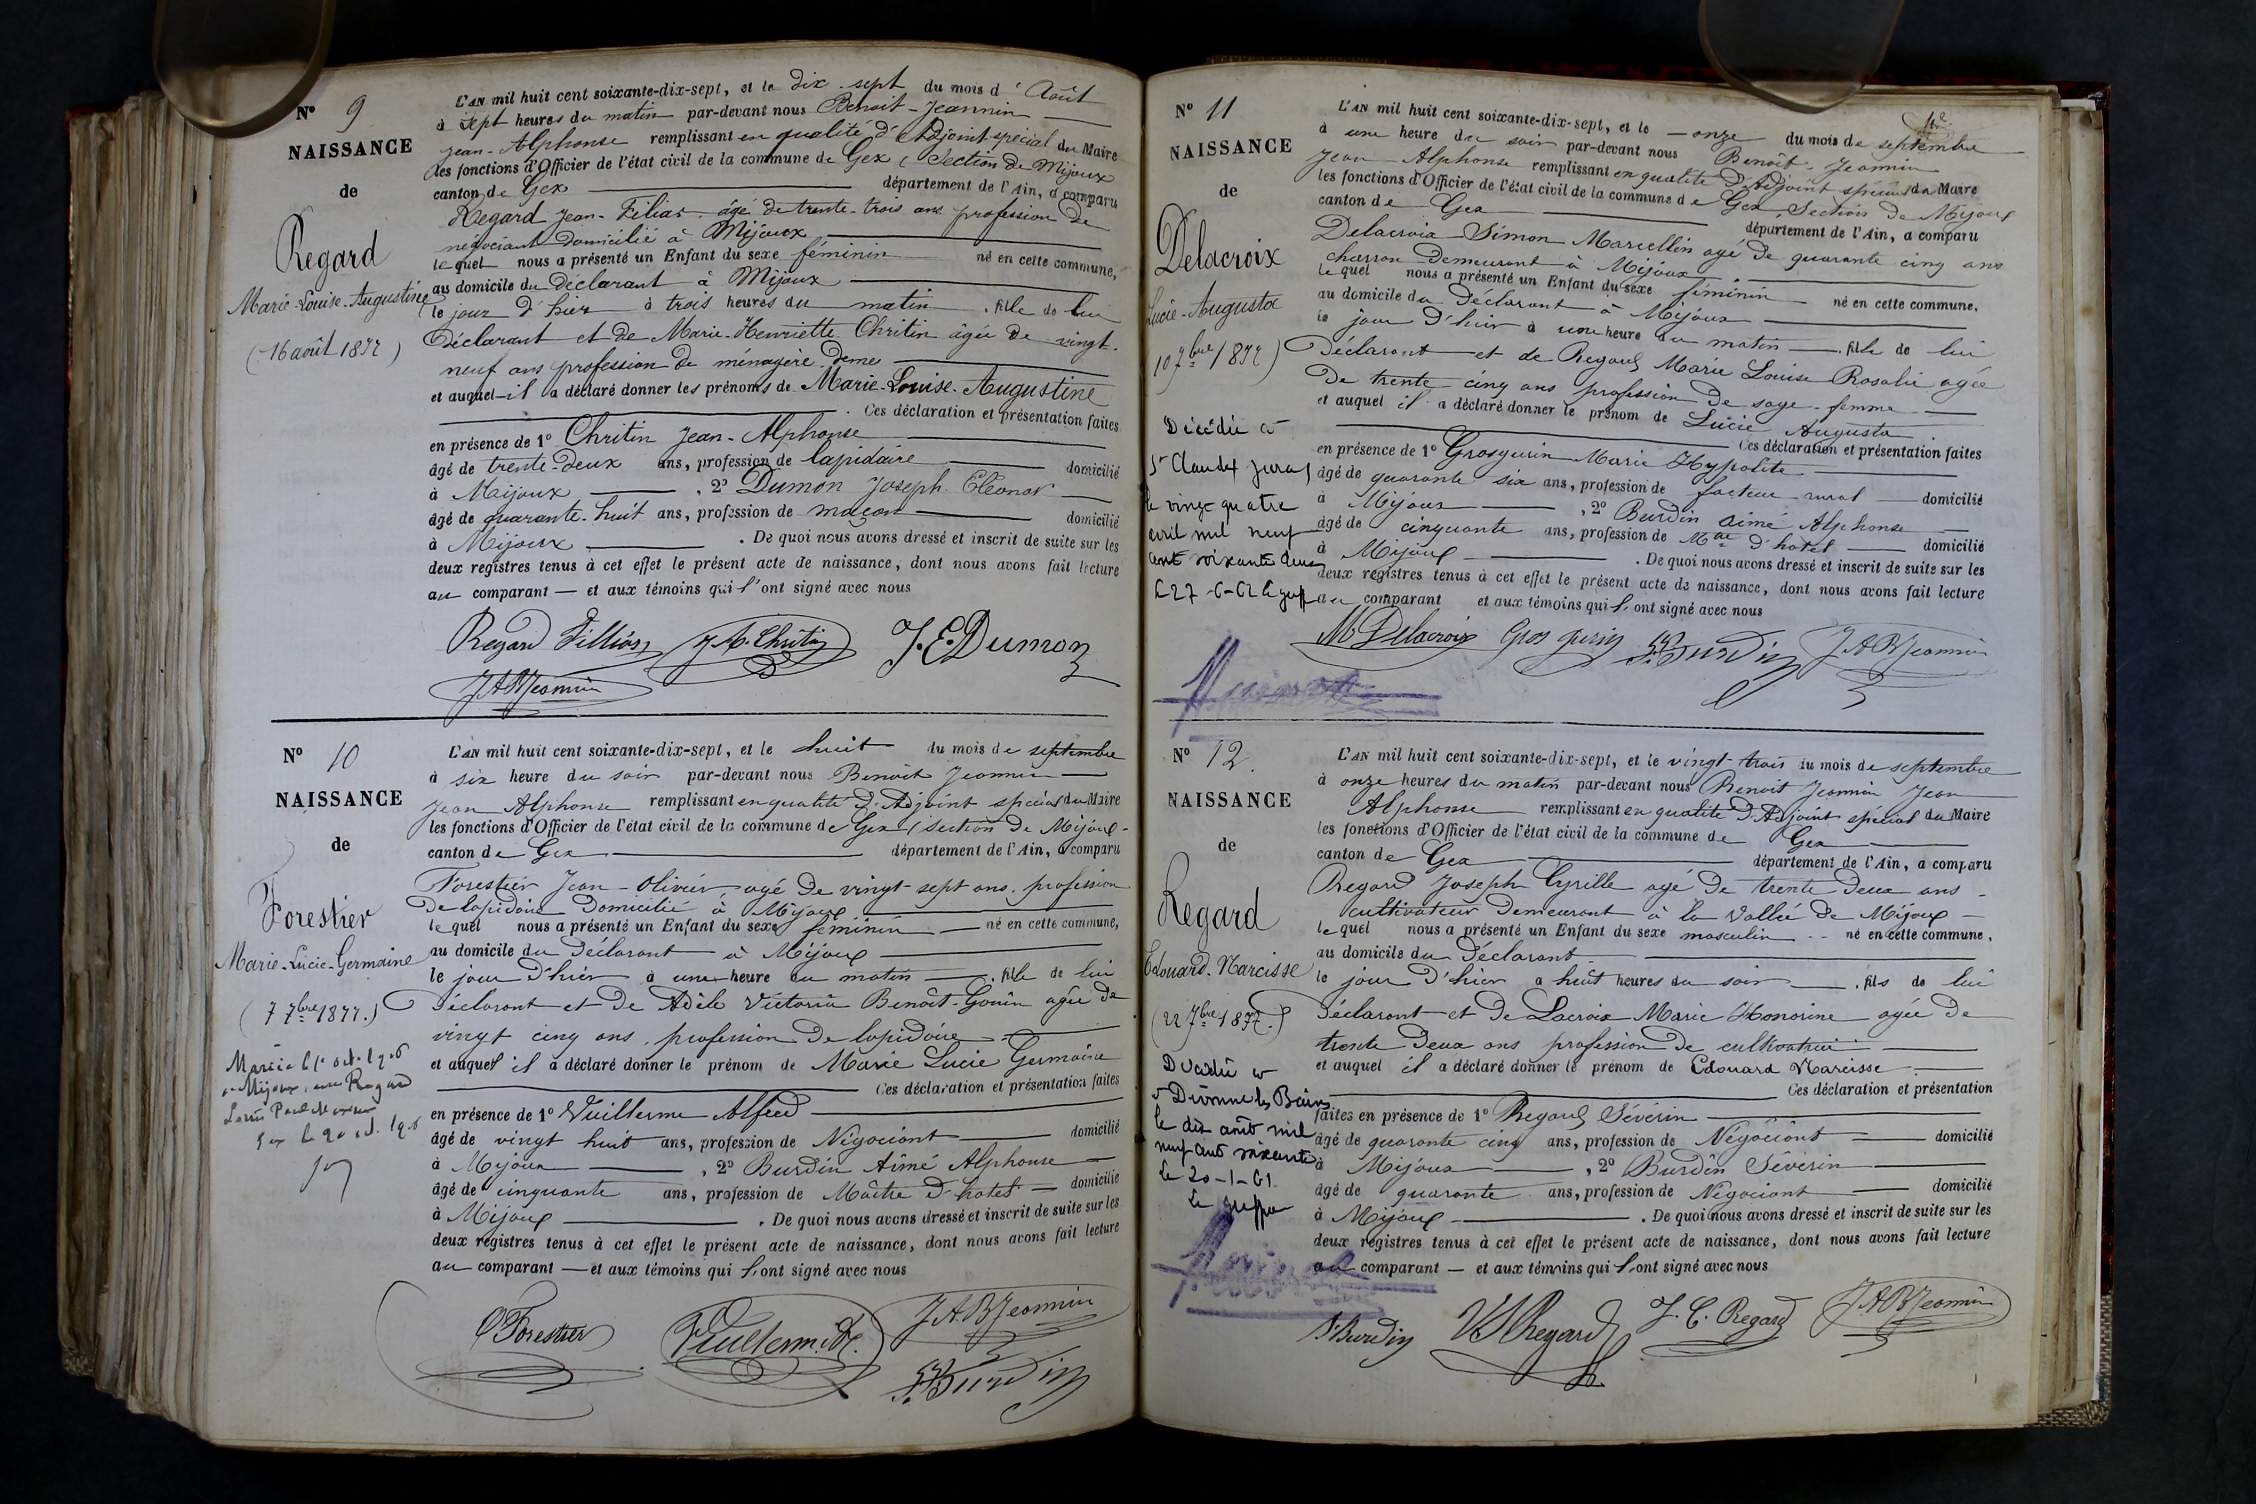 N° 9
NAISSANCE
de
Regard
Marie-Louise-Augustine
(16 août 1877)
L'AN mil huit cent soixante-dix-sept, et le dix-sept du mois d'Août
à sept heures du matin par-devant nous Benoit-Jeannin
Jean-Alphonse remplissant en qualité d'Adjoint spécial du Maire
les fonctions d'Officier de l'état civil de la commune de Gex (Section de Mijoux
canton de Gex département de l'Ain, a comparu
Regard Jean-Félias âgé de trente-trois ans profession de
négociant domicilié à Mijoux
lequel nous a présenté un Enfant du sexe féminin né en cette commune,
au domicile du déclarant à Mijoux
le jour d'hier à trois heures du matin, fille de lui
Déclarant et de Marie-Henriette Chritin âgée de vingt-
neuf ans profession de ménagère deme
et auquel il a déclaré donner les prénoms de Marie-Louise-Augustine
Ces déclaration et présentation faites
en présence de 1° Chritin Jean-Alphonse
âgé de trente-deux ans, profession de lapidaire domicilié
à Mijoux, 2° Dumon Joseph Eléonor
âgé de quarante-huit ans, profession de maçon domicilié
à Mijoux. De quoi nous avons dressé et inscrit de suite sur les
deux registres tenus à cet effet le présent acte de naissance, dont nous avons fait lecture
au comparant — et aux témoins qui l'ont signé avec nous
Regard Fillias J A Chritin J. E. Dumon
J A B Jeannin
N° 10
NAISSANCE
de
Forestier
Marie-Lucie-Germaine
(7 7bre 1877.)
Mariée le 1er oct. 1906
à Mijoux, avec Regard
Gex le 20 oct. 1906
L'AN mil huit cent soixante-dix-sept, et le huit du mois de septembre
à six heure du soir par-devant nous Benoit Jeannin
Jean Alphonse remplissant en qualité d'Adjoint spécial du Maire
les fonctions d'Officier de l'état civil de la commune de Gex (section de Mijoux-
canton de Gex département de l'Ain, a comparu
Forestier Jean-Olivier âgé de vingt-sept ans, profession
de lapidaire domicilié à Mijoux
lequel nous a présenté un Enfant du sexe féminin né en cette commune,
au domicile du déclarant à Mijoux
le jour d'hier à une heure du matin, fille de lui
Déclarant et de Adèle Victoria Benoît-Gonin agée de
vingt cinq ans, profession de lapidaire
et auquel il a déclaré donner le prénom de Marie Lucie Germaine
Ces déclaration et présentation faites
en présence de 1° Vuillerme Alfred
âgé de vingt huit ans, profession de Négociant domicilié
à Mijoux, 2° Burdin Aimé Alphonse
âgé de cinquante ans, profession de Maître d'hotel domicilié
à Mijoux. De quoi nous avons dressé et inscrit de suite sur les
deux registres tenus à cet effet le présent acte de naissance, dont nous avons fait lecture
au comparant — et aux témoins qui l'ont signé avec nous
O Forestier Vuillerme J A B Jeannin
Burdin
N° 11
NAISSANCE
de
Delacroix
Lucie-Augusta
10 7bre 1877)
Décédée à
St Claude Jura
le vingt quatre
avril mil neuf
cent soixante deux
le 27-6-62 le greff
L'AN mil huit cent soixante-dix-sept, et le onze du mois de septembre
à une heure du soir par-devant nous Benoît-Jeannin
Jean Alphonse remplissant en qualité d'Adjoint spécial du Maire
les fonctions d'Officier de l'état civil de la commune de Gex, Section de Mijoux
canton de Gex département de l'Ain, a comparu
Delacroix Simon Marcellin agé de quarante cinq ans
charron demeurant à Mijoux
lequel nous a présenté un Enfant du sexe féminin né en cette commune,
au domicile du déclarant à Mijoux
le jour d'hier à une heure du matin, fille de lui
Déclarant et de Regard Marie Louise Rosalie agée
de trente cinq ans profession de sage-femme
et auquel il a déclaré donner le prénom de Lucie Augusta
Ces déclaration et présentation faites
en présence de 1° Grosgurin Marie Hypolite
âgé de quarante six ans, profession de facteur rural domicilié
à Mijoux, 2° Burdin Aimé Alphonse
âgé de cinquante ans, profession de Mtre d'hotel domicilié
à Mijoux. De quoi nous avons dressé et inscrit de suite sur les
deux registres tenus à cet effet le présent acte de naissance, dont nous avons fait lecture
au comparant et aux témoins qui l'ont signé avec nous
M Delacroix Gros gurin Burdin J A B Jeannin
N° 12
NAISSANCE
de
Regard
Edouard-Narcisse
(22 7bre 1877.)
Décédé à
Divonne les Bains
le dix août mil
neuf cent soixante
le 20-1-61
Le greffier
L'AN mil huit cent soixante-dix-sept, et le vingt trois du mois de septembre
à onze heures du matin par-devant nous Benoit Jeannin Jean
Alphonse remplissant en qualité d'Adjoint spécial du Maire
les fonctions d'Officier de l'état civil de la commune de Gex
canton de Gex département de l'Ain, a comparu
Regard Joseph Cyrille agé de trente deux ans
cultivateur demeurant à la vallée de Mijoux
lequel nous a présenté un Enfant du sexe masculin né en cette commune,
au domicile du déclarant
le jour d'hier à huit heures du soir, fils de lui
déclarant et de Lacroix Marie Honorine agée de
trente deux ans profession de cultivatrice
et auquel il a déclaré donner le prénom de Edouard Narcisse
Ces déclaration et présentation
faites en présence de 1° Regard Sévérin
âgé de quarante cinq ans, profession de Négociant domicilié
à Mijoux, 2° Burdin Sévérin
âgé de quarante ans, profession de Négociant domicilié
à Mijoux. De quoi nous avons dressé et inscrit de suite sur les
deux registres tenus à cet effet le présent acte de naissance, dont nous avons fait lecture
au comparant — et aux témoins qui l'ont signé avec nous
S. Burdin VS Regard J. C. Regard J A B Jeannin